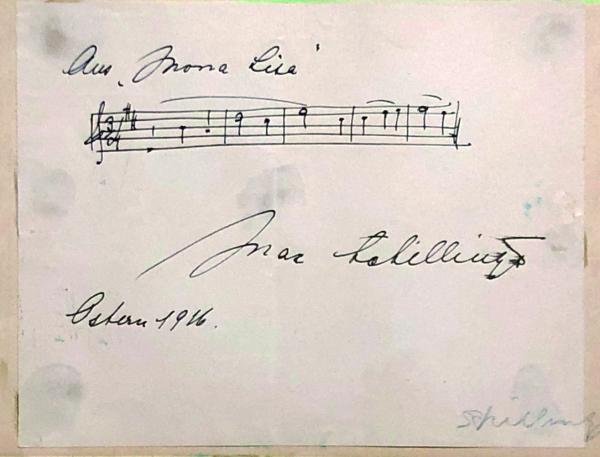 Aus „Mona Lisa"
Max Schillings
Ostern 1916.
Schillings